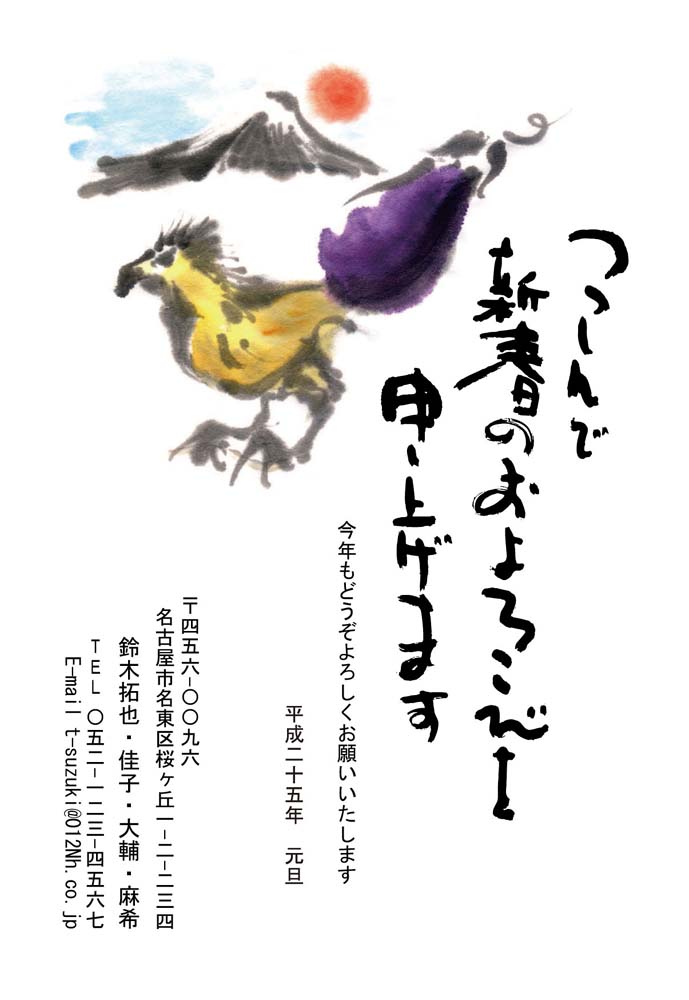 つつしんで
新春のおよろこびを
申し上げます
今年もどうぞよろしくお願いいたします
平成二十五年　元旦
〒四五六−〇〇九六
名古屋市名東区桜ヶ丘一−二−二三四
鈴木拓也・佳子・大輔・麻希
ＴＥＬ 〇五二−一二三−四五六七
E-mail t-suzuki@012Nh.co.jp